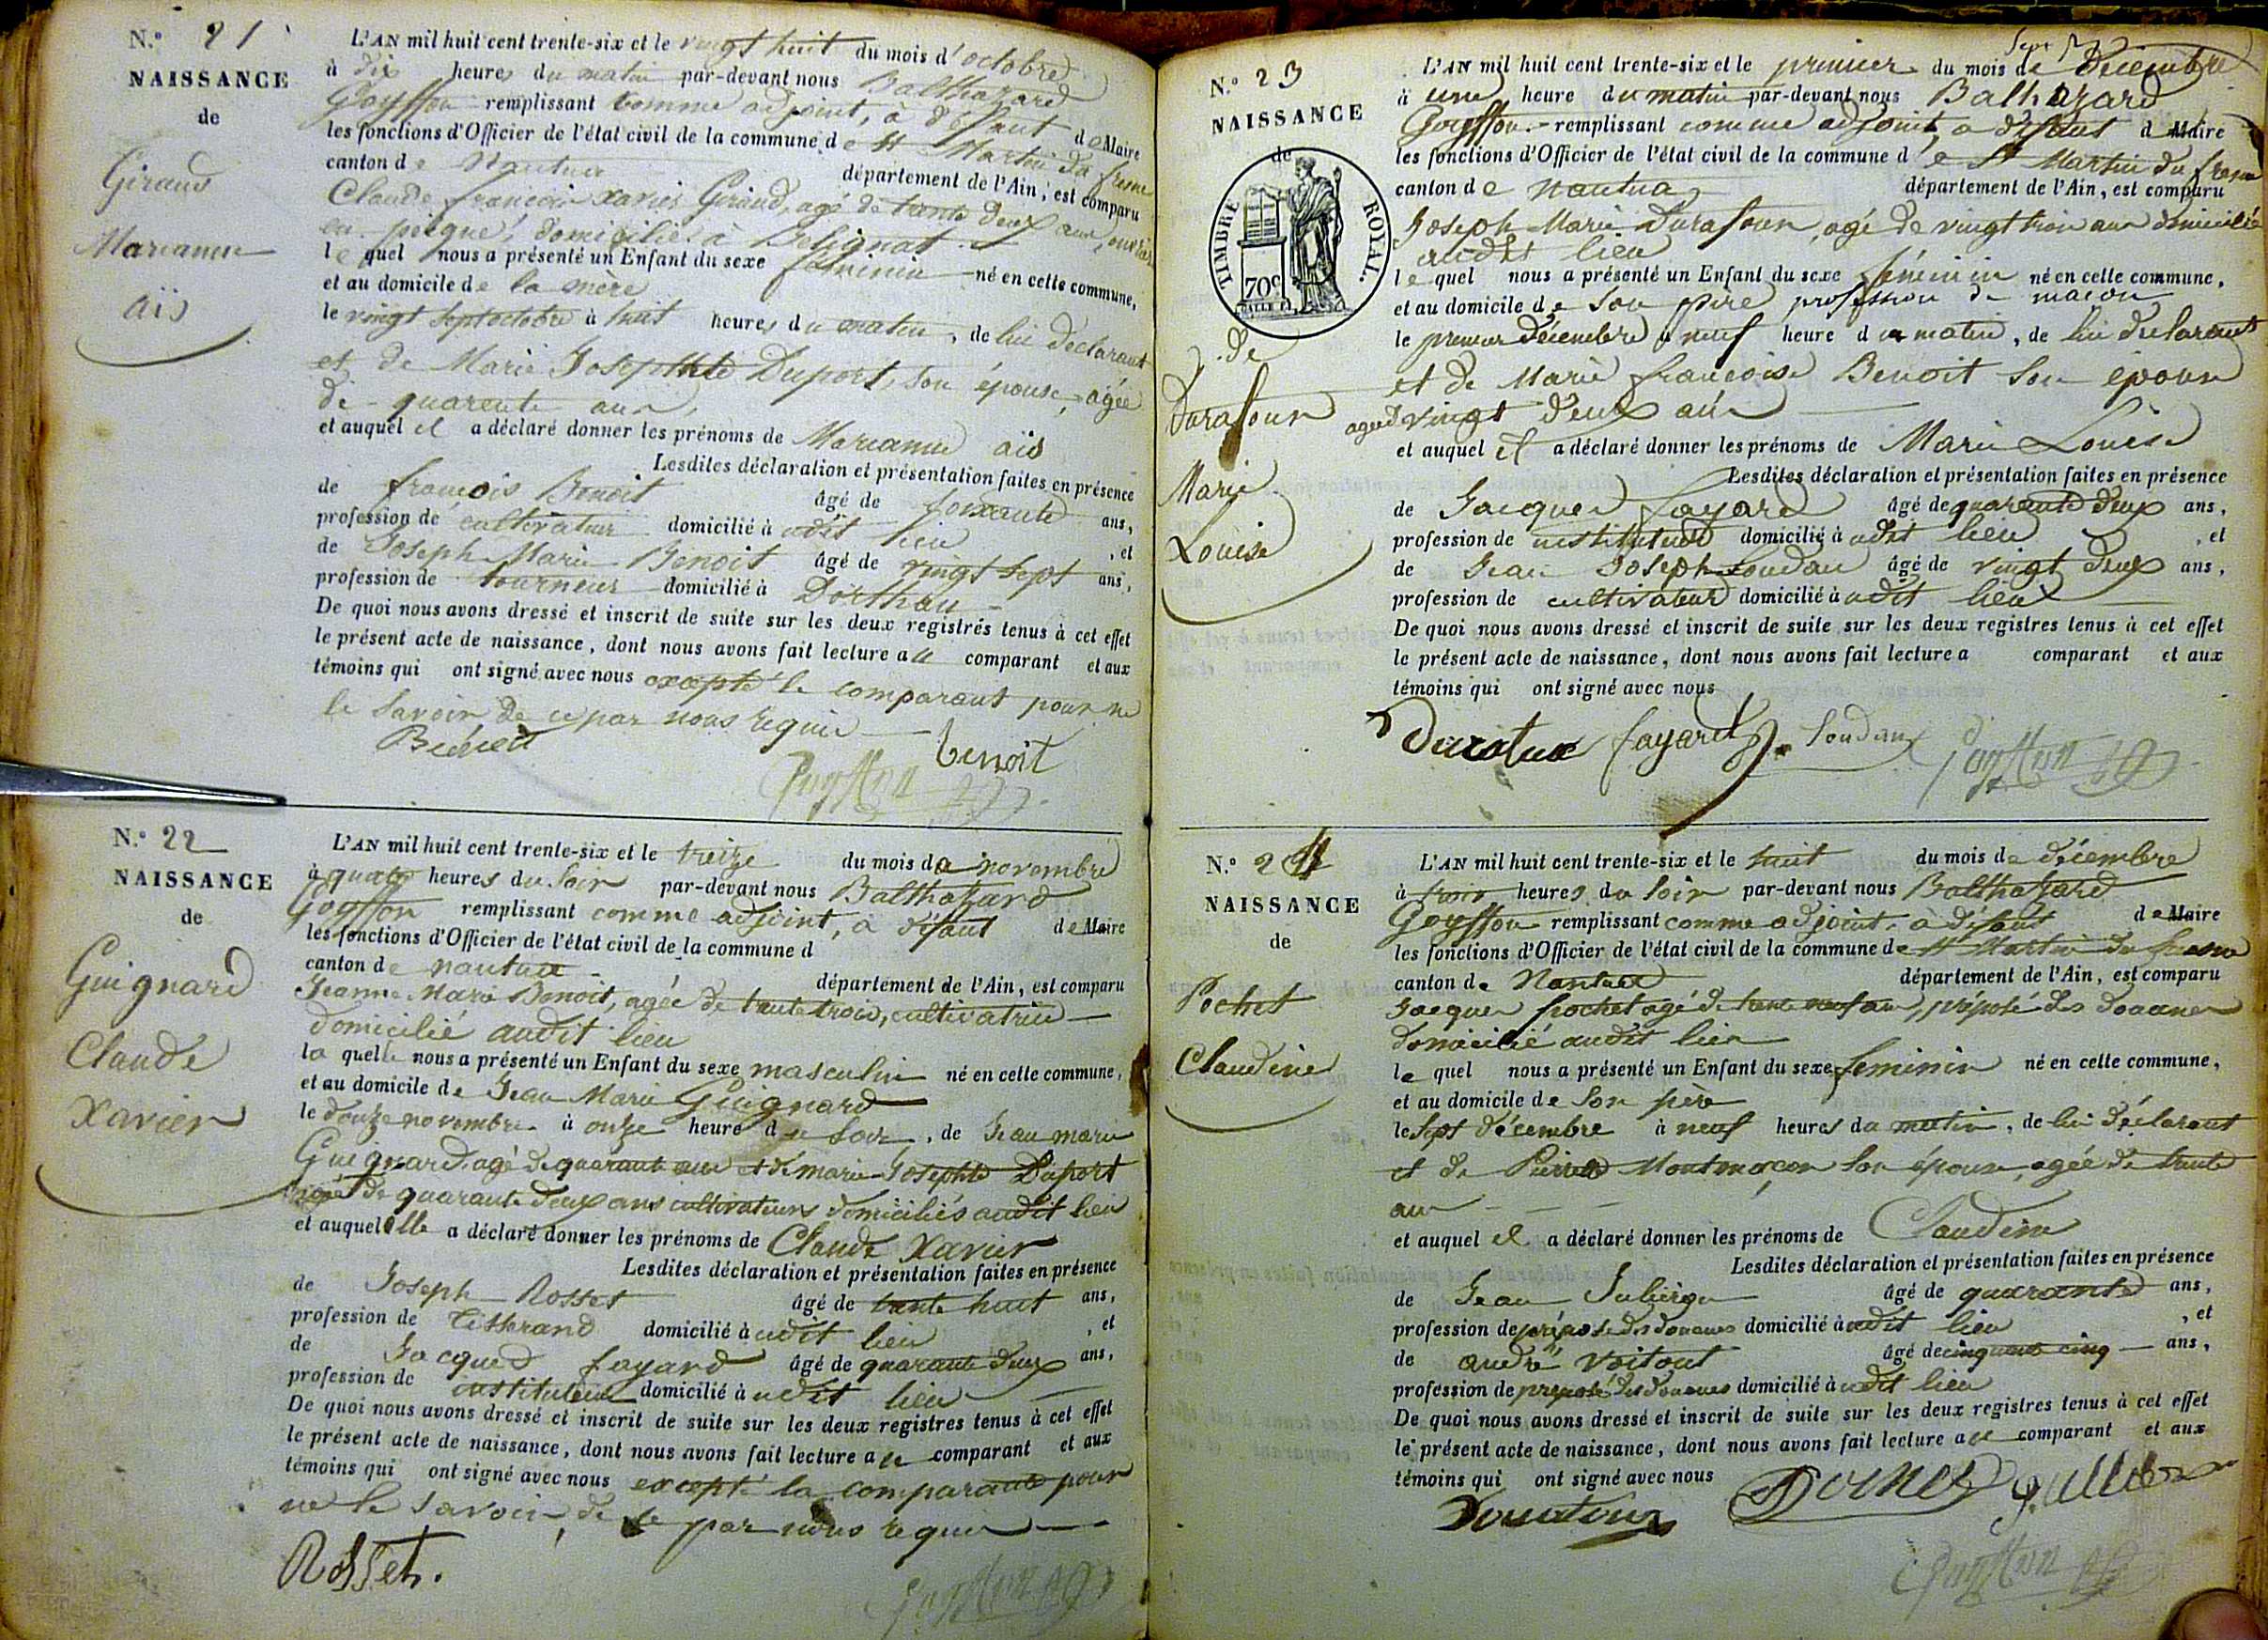 N.° 21
NAISSANCE
de
Giraud
Marianne
aïs
L'AN mil huit cent trente-six et le vingt huit du mois d'octobre
à dix heures du matin par-devant nous Balthazard
Goyffon remplissant comme adjoint, à défaut de Maire
les fonctions d'Officier de l'état civil de la commune de St Martin du fresne
canton de Nantua département de l'Ain, est comparu
Claude françois Xavier Giraud, agé de trente deux ans, ouvrier
en peigne, domicilié à Belignat
lequel nous a présenté un Enfant du sexe féminin né en cette commune,
et au domicile de la mère
le vingt sept octobre à huit heures du matin, de lui déclarant
et de Marie Josephte Duport, son épouse, agée
de quarente ans,
et auquel il a déclaré donner les prénoms de Marianne aïs
Lesdites déclaration et présentation faites en présence
de françois Benoit âgé de soixante ans,
profession de cultivateur domicilié à udit lieu
de Joseph Marie Benoit âgé de vingt sept ans, et
profession de tourneur domicilié à Dorthan
De quoi nous avons dressé et inscrit de suite sur les deux registres tenus à cet effet
le présent acte de naissance, dont nous avons fait lecture au comparant et aux
témoins qui ont signé avec nous excepté le comparant pour ne
le savoir de ce par nous requis
Benoit benoit
Goyffon
N.° 22
NAISSANCE
de
Guignard
Claude
Xavier
L'AN mil huit cent trente-six et le treize du mois de novembre
à quatre heures du soir par-devant nous Balthazard
Goyffon remplissant comme adjoint, à défaut de Maire
les fonctions d'Officier de l'état civil de la commune d
canton de nantua département de l'Ain, est comparu
Jeanne Marie Benoit, agée de trente trois, cultivatrice
domicilié audit lieu
laquelle nous a présenté un Enfant du sexe masculin né en cette commune,
et au domicile de Jean Marie Guignard
le douze novembre à onze heure du soir, de Jean marie
Guignard agé de quarante ans et de marie Josephte Duport
agée de quarante deux ans cultivateurs domiciliés audit lieu
et auquel elle a déclaré donner les prénoms de Claude Xavier
Lesdites déclaration et présentation faites en présence
de Joseph Rosset âgé de trente huit ans,
profession de Tisserand domicilié à udit lieu, et
de Jacques fayard âgé de quarante deux ans,
profession de instituteur domicilié à udit lieu
De quoi nous avons dressé et inscrit de suite sur les deux registres tenus à cet effet
le présent acte de naissance, dont nous avons fait lecture a comparant et aux
témoins qui ont signé avec nous excepté la comparante pour
ne le savoir de ce par nous requis
Rosset.
Goyffon
N.° 23
NAISSANCE
de
TIMBRE ROYAL.
70c
de
Durafour
Marie
Louise
L'AN mil huit cent trente-six et le premier du mois de décembre
à une heure du matin par-devant nous Balthazard
Goyffon remplissant comme adjoint, a défaut d Maire
les fonctions d'Officier de l'état civil de la commune de St Martin du fresne
canton de nantua département de l'Ain, est comparu
Joseph Marie Durafour, agé de vingt trois ans domicilié
audit lieu
lequel nous a présenté un Enfant du sexe féminin né en cette commune,
et au domicile de son père profession de maçon
le premier décembre à neuf heure du matin, de lui déclarant
et de Marie françoise Benoit son épouse
agée d vingt deux ans
et auquel il a déclaré donner les prénoms de Marie Louise
Lesdites déclaration et présentation faites en présence
de Jacques fayard âgé de quarante deux ans,
profession de instituteur domicilié à udit lieu, et
de Jean Joseph Soudan âgé de vingt deux ans,
profession de cultivateur domicilié à udit lieu
De quoi nous avons dressé et inscrit de suite sur les deux registres tenus à cet effet
le présent acte de naissance, dont nous avons fait lecture a comparant et aux
témoins qui ont signé avec nous
fayard Soudan Goyffon
N.° 24
NAISSANCE
de
Pochet
Claudine
L'AN mil huit cent trente-six et le huit du mois de décembre
à trois heures du soir par-devant nous Balthazard
Goyffon remplissant comme adjoint, à défaut de Maire
les fonctions d'Officier de l'état civil de la commune de St Martin du fresne
canton de Nantua département de l'Ain, est comparu
Jacques pochet agé de trente neuf ans, préposé des douanes
domicilié audit lieu
lequel nous a présenté un Enfant du sexe feminin né en cette commune,
et au domicile de son père
le sept décembre à neuf heures du matin, de lui déclarant
et de Pierrette Montmaçon son épouse, agée de trente
ans
et auquel il a déclaré donner les prénoms de Claudine
Lesdites déclaration et présentation faites en présence
de Jean âgé de quarante ans,
profession de préposé des douanes domicilié à udit lieu, et
de andré Voitout âgé de cinquante cinq ans,
profession de préposé des douanes domicilié à udit lieu
De quoi nous avons dressé et inscrit de suite sur les deux registres tenus à cet effet
le présent acte de naissance, dont nous avons fait lecture a comparant et aux
témoins qui ont signé avec nous
Goyffon